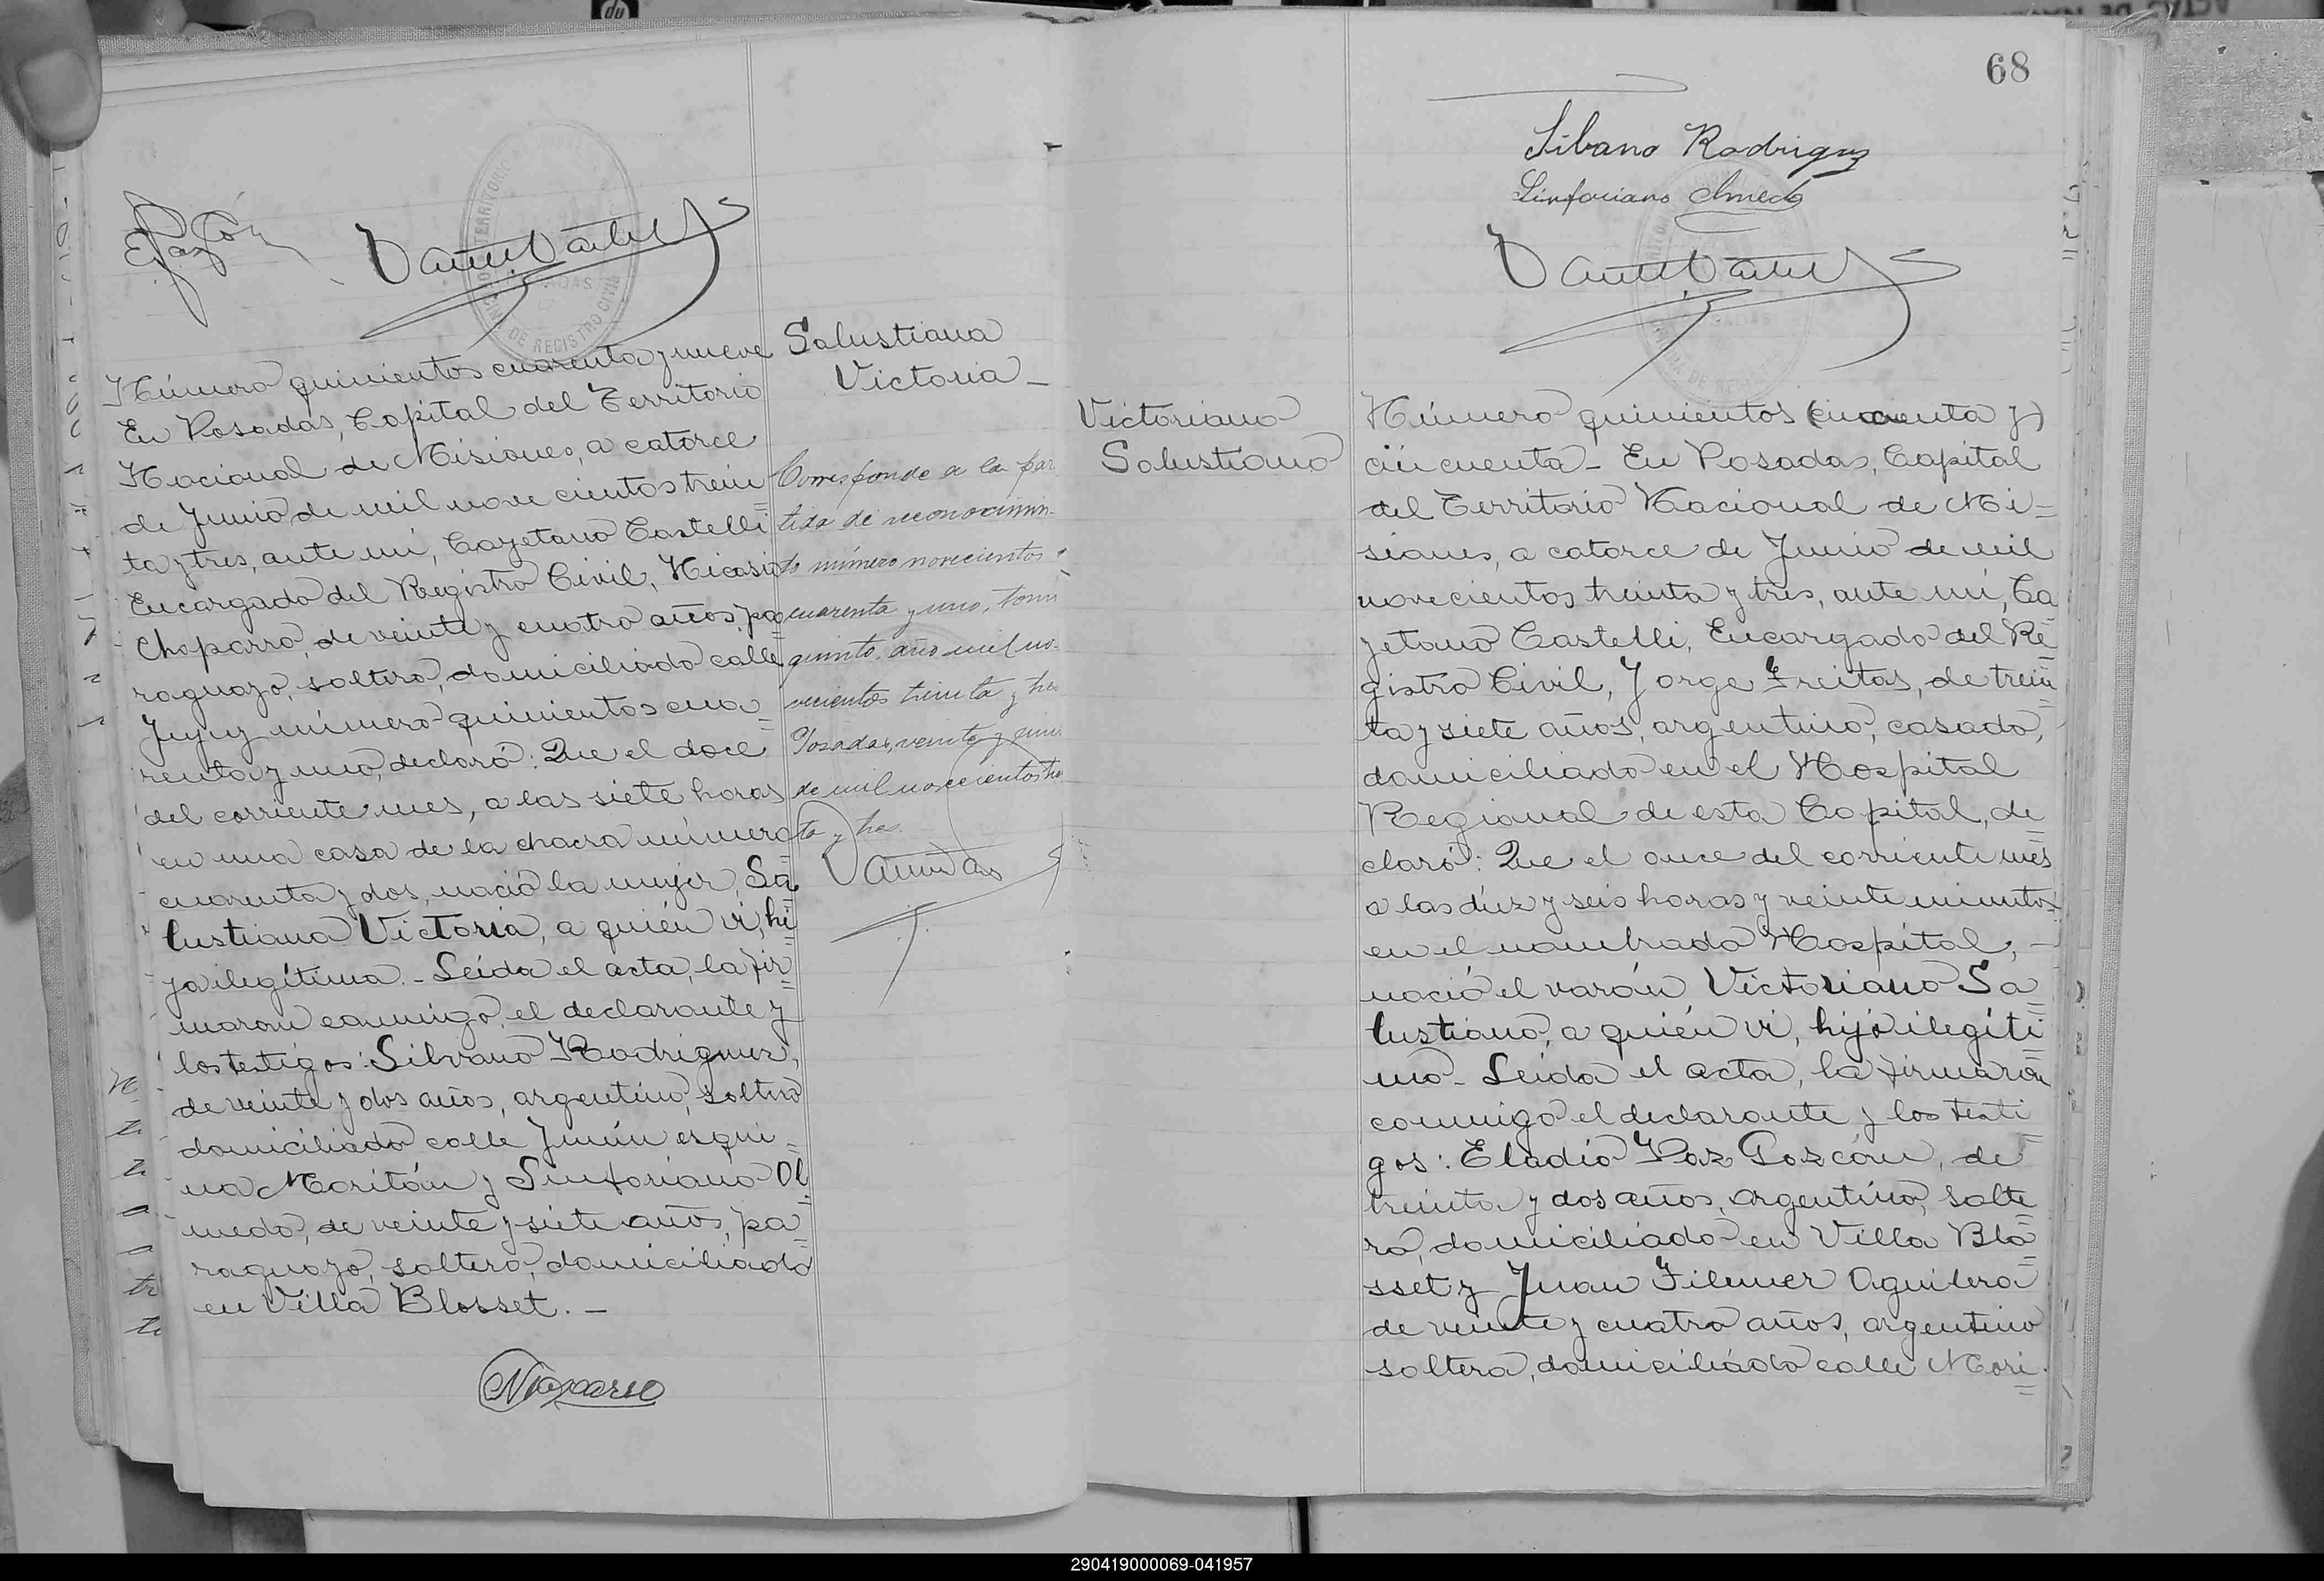 Número quinientos cuarenta y nueve
En Posadas, Capital del Territorio
Nacional de Misiones, a catorce
de Junio de mil nove cientos trein
ta y tres, ante mí, Cayetano Castelli
Encargado del Registro Civil, Nicasio
Chaparro, de veinte y cuatro años, pa
raguayo, soltero, domiciliado calle
Jujuy número quinientos cua
renta y uno, declaró: Que el doce
del corriente mes, a las siete horas
en una casa de la chacra número
cuarenta y dos, nació la mujer, Sa
lustiana Victoria, a quién vi, hi
ja ilegítima.- Leída el acta, la fir
maron conmigo, el declarante y
los testigos: Silvano Rodriguez,
de veinte y dos años, argentino, soltero
domiciliado calle Junín esqui-
na Moritán y Sinforiano Ol
medo, de veinte y siete años, pa
raguayo, soltero, domiciliado
en Villa Blosset.-
Salustiana
Victoria-
Corresponde a la par
tida de reconocimien-
to número novecientos
cuarenta y uno, tomo
quinto, año mil no-
vecientos treinta y tres
Posadas, veinte y
de mil novecientos trein
ta y tres.
68
Silbano Rodriguez
Sinforiano Olmedo
Victoriano
Salustiano
Número quinientos (cincuenta y)
cincuenta- En Posadas, Capital
del Territorio Nacional de Mi-
siones, a catorce de Junio de mil
novecientos treinta y tres, ante mí, Ca
yetano Castelli, Encargado del Re
gistro Civil, Jorge Freitas, de trein
ta y siete años, argentino, casado,
domiciliado en el Hospital
Regional de esta Capital, de
claró: Que el once del corriente mes
a las diez y seis horas y veinte minutos
en el nombrado Hospital,-
nació el varón, Victoriano Sa
lustiano, a quién vi, hijo ilegíti
mo- Leída el acta, la firmaron
conmigo el declarante y los testi
gos: Eladio Paz Gozcón, de
treinta y dos años, argentino, solte
ro, domiciliado en Villa Blo
sset y Juan Filemer Aguilera
de veinte y cuatro años, argentino
soltero, domiciliado calle Mori
290419000069-041957